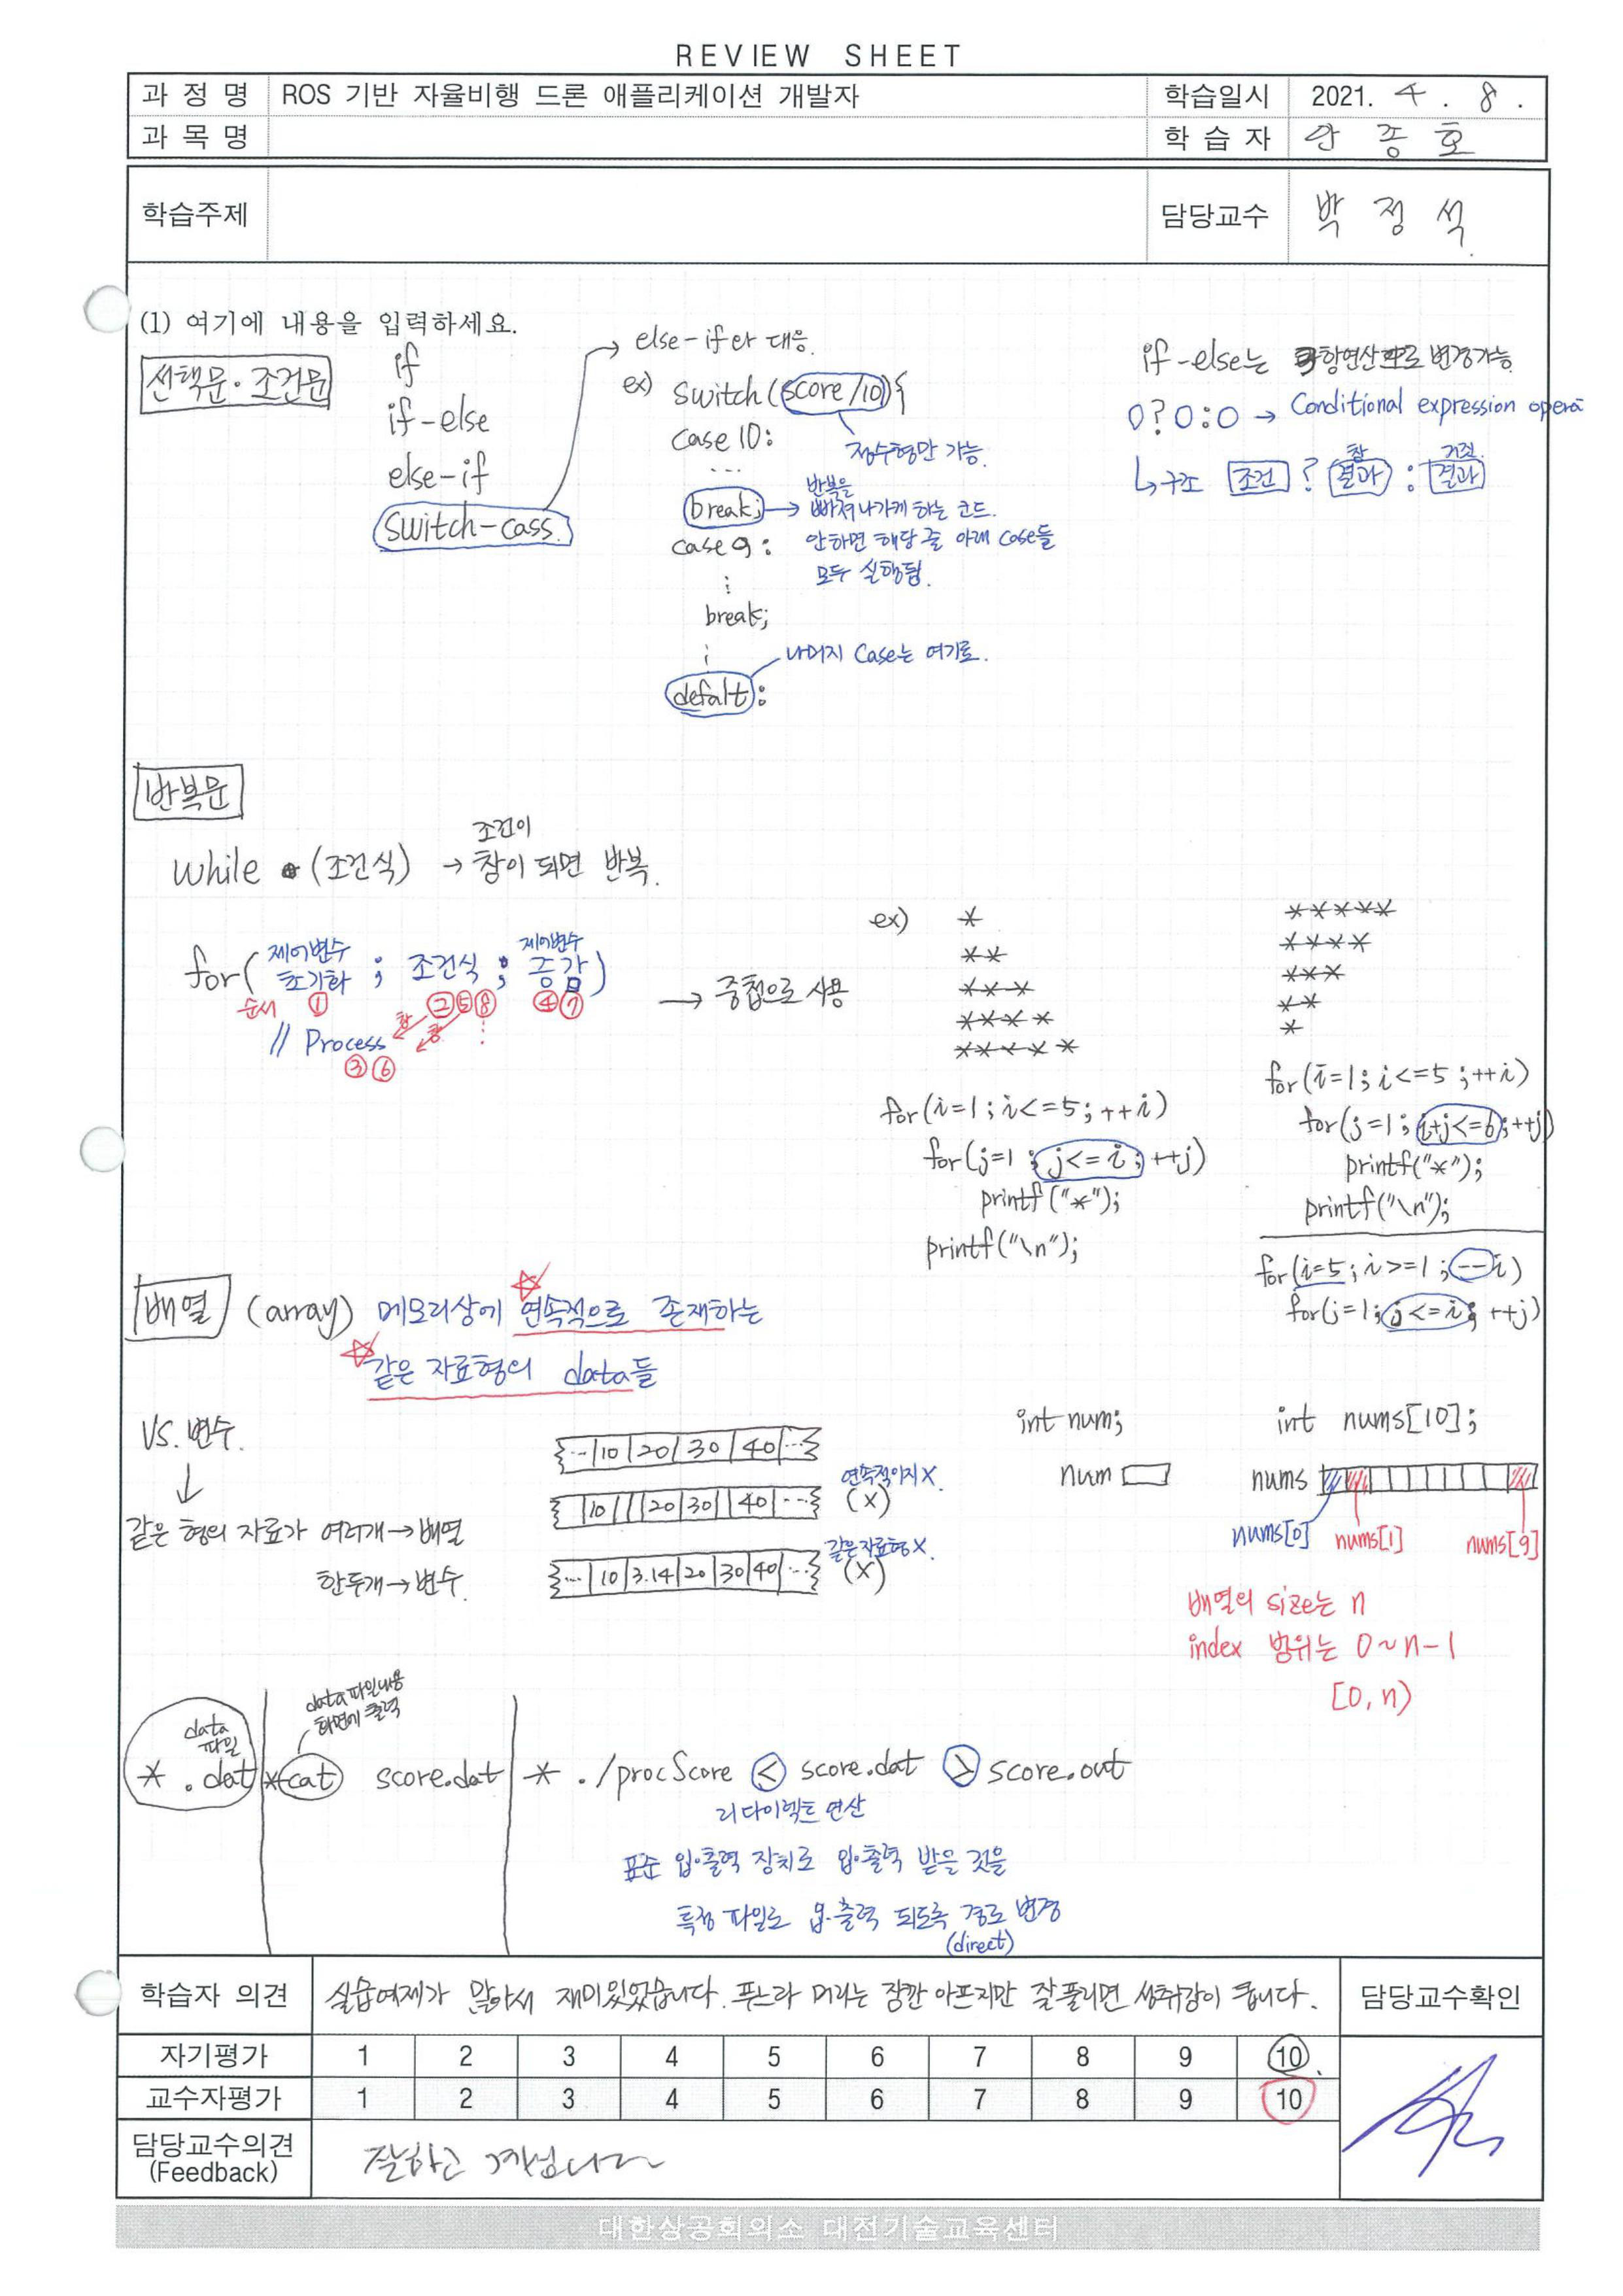 REVIEW SHEET
과 정 명 ROS 기반 자율비행 드론 애플리케이션 개발자 학습일시 2021. 4 . 8 .
과 목 명 학 습 자 종 호
학습주제 담당교수 박 정 석
(1) 여기에 내용을 입력하세요.
선택문·조건문
if
if-else
else-if
switch-cass.
else-if와 대응.
ex) switch(score/10){
정수형만 가능.
case 10:
...
break;
반복을
빠져나가게 하는 코드.
안하면 해당 줄 아래 case들
모두 실행됨.
case 9:
⋮
break;
⋮
나머지 case는 여기로.
defalt:
if-else는 항연산으로 변경가능
O?O:O → Conditional expression opera
↳구조 조건 ? 결과 : 결과
참 거짓.
반복문
조건이
while (조건식) → 참이 되면 반복.
for( 제어변수 초기화 ; 조건식 ; 제어변수 증감)
순서 ① ②⑤⑧ ④⑦
// Process 참 참
③⑥
→ 중첩으로 사용
ex)
*
**
***
****
*****
for(i=1;i<=5;++i)
for(j=1;j<=i;++j)
printf("*");
printf("\n");
*****
****
***
**
*
for(i=1;i<=5;++i)
for(j=1;i+j<=6;++j)
printf("*");
printf("\n");
for(i=5;i>=1;--i)
for(j=1;j<=i;++j)
배열 (array) 메모리상에 연속적으로 존재하는
같은 자료형의 data들
VS. 변수.
↓
같은 형의 자료가 여러개→배열
한두개→변수.
...|10|20|30|40|...
|10| | |20|30| |40|... 연속적이지X. (X)
...|10|3.14|20|30|40|... 같은자료형X. (X)
int num;
num
int nums[10];
nums
nums[0] nums[1] nums[9]
배열의 size는 n
index 범위는 0~n-1
[0,n)
data
파일
* .dat
data파일내용
화면에 출력
*cat score.dat
* ./procScore < score.dat > score.out
리다이렉트 연산
표준 입·출력 장치로 입·출력 받을 것을
특정 파일로 입·출력 되도록 경로 변경
(direct)
학습자 의견 실습예제가 많아서 재미있었습니다. 푸느라 머리는 잠깐 아프지만 잘풀리면 성취감이 큽니다. 담당교수확인
자기평가 1 2 3 4 5 6 7 8 9 10
교수자평가 1 2 3 4 5 6 7 8 9 10
담당교수의견
(Feedback)
잘하고 계십니다
대한상공회의소 대전기술교육센터